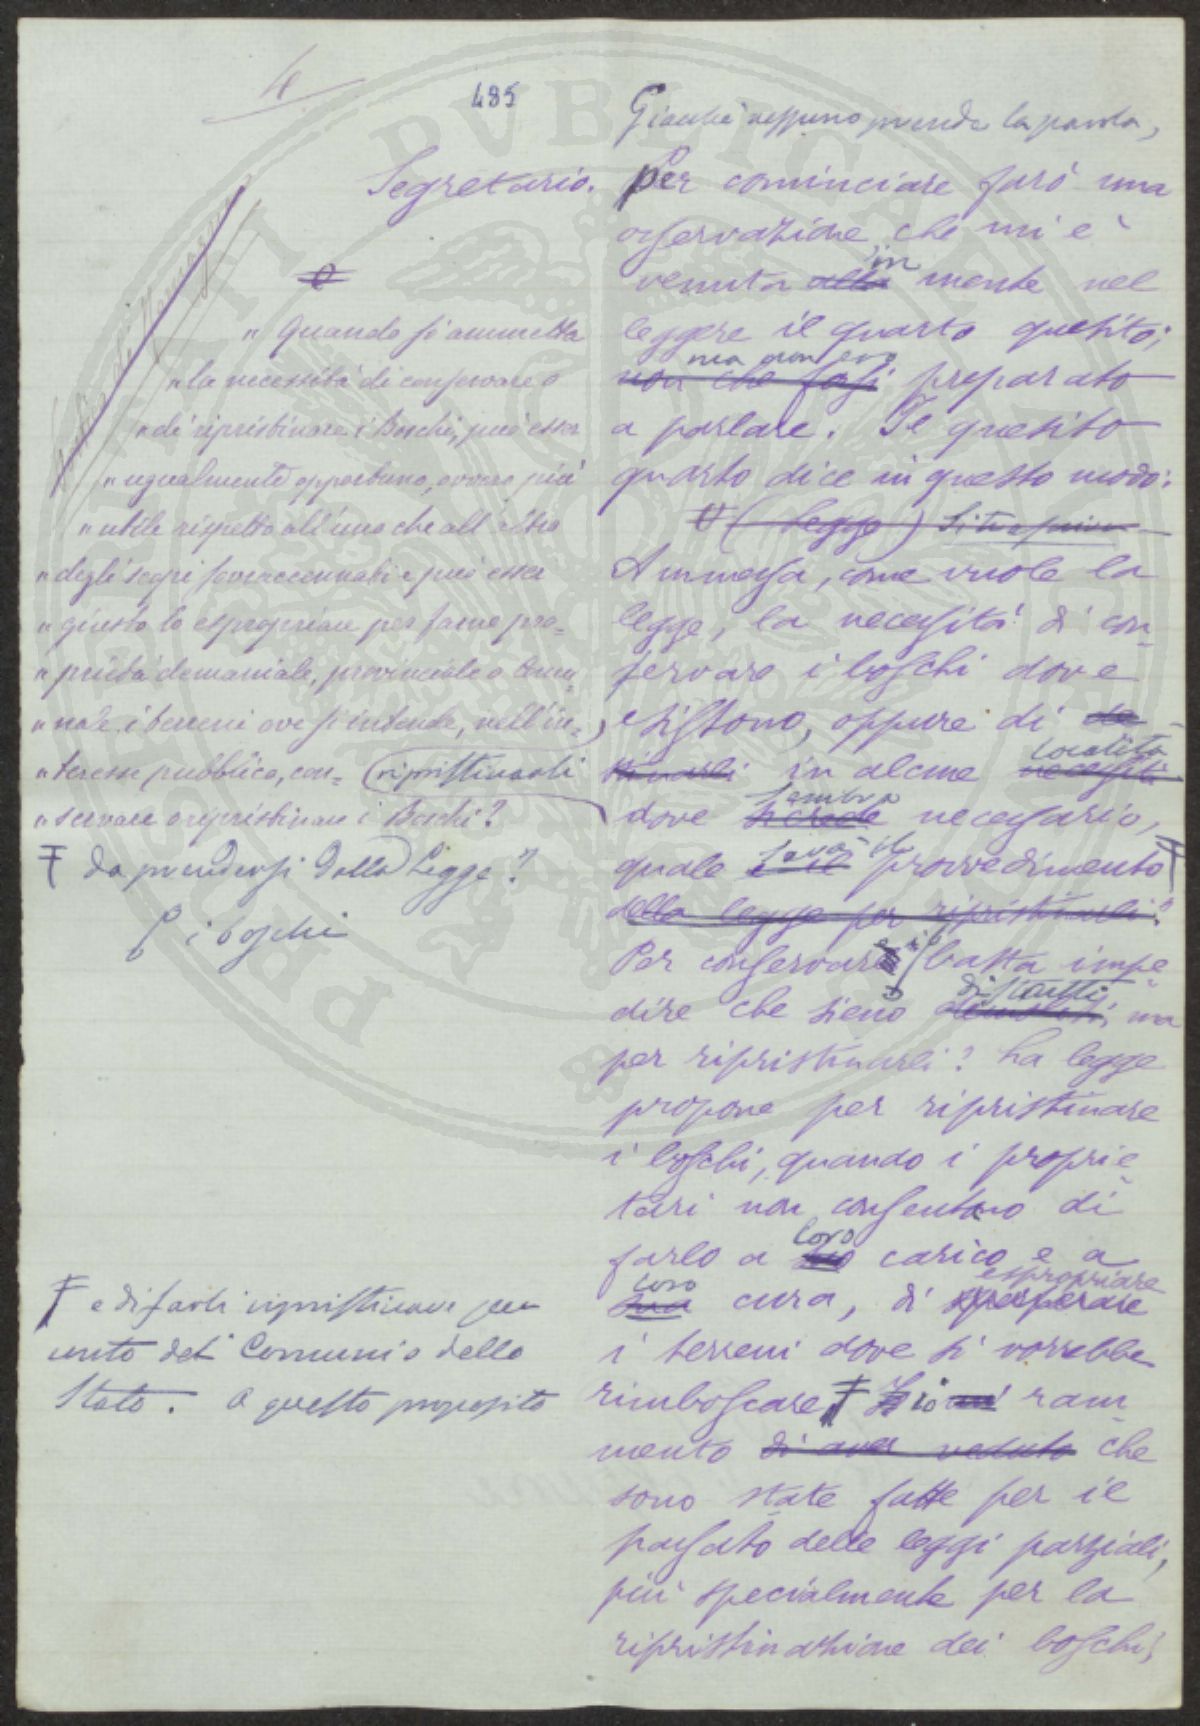 4
485
Giacché nessuno prende la parola,
Segretario.
Per cominciare farò una
osservazione che mi è
venuta alla in mente nel
leggere il quarto quesito;
non che fossi ma non ero preparato
a parlare. Il quesito
quarto dice in questo modo:
(legge)
" Quando si ammetta
" la necessità di conservare o
" di ripristinare i Boschi, può esser
" ugualmente opportuno, ovvero più
" utile rispetto all'uno che all'altro
" degli scopi sovraccennati e può esser
" giusto lo espropriare per farne pro=
" prietà demaniale, provinciale o Comu=
" nale i terreni ove si intende, nell'in=
" teresse pubblico, con=
" servare o ripristinare i Boschi?
Ammessa, come vuole la
legge, la necessità di con=
servare i boschi dove
esistono, oppure di
ripristinarli
in alcune necessità località
dove si crede sembra necessario,
quale è il sarà il provvedimento
da prendersi dalla legge?
della legge per ripristinarli?
Per conservare
i boschi
basta impe=
dire che sieno distrutti, ma
per ripristinarli? La legge
propone per ripristinare
i boschi, quando i proprie=
tari non consentano di
farlo a suo loro carico e a
sua loro cura, di espropriare
i terreni dove si vorrebbe
rimboscare
e di farli ripristinare per
conto dei Comuni o dello
Stato. A questo proposito
io ram=
mento di aver veduto che
sono state fatte per il
passato delle leggi parziali,
più specialmente per la
ripristinazione dei boschi;